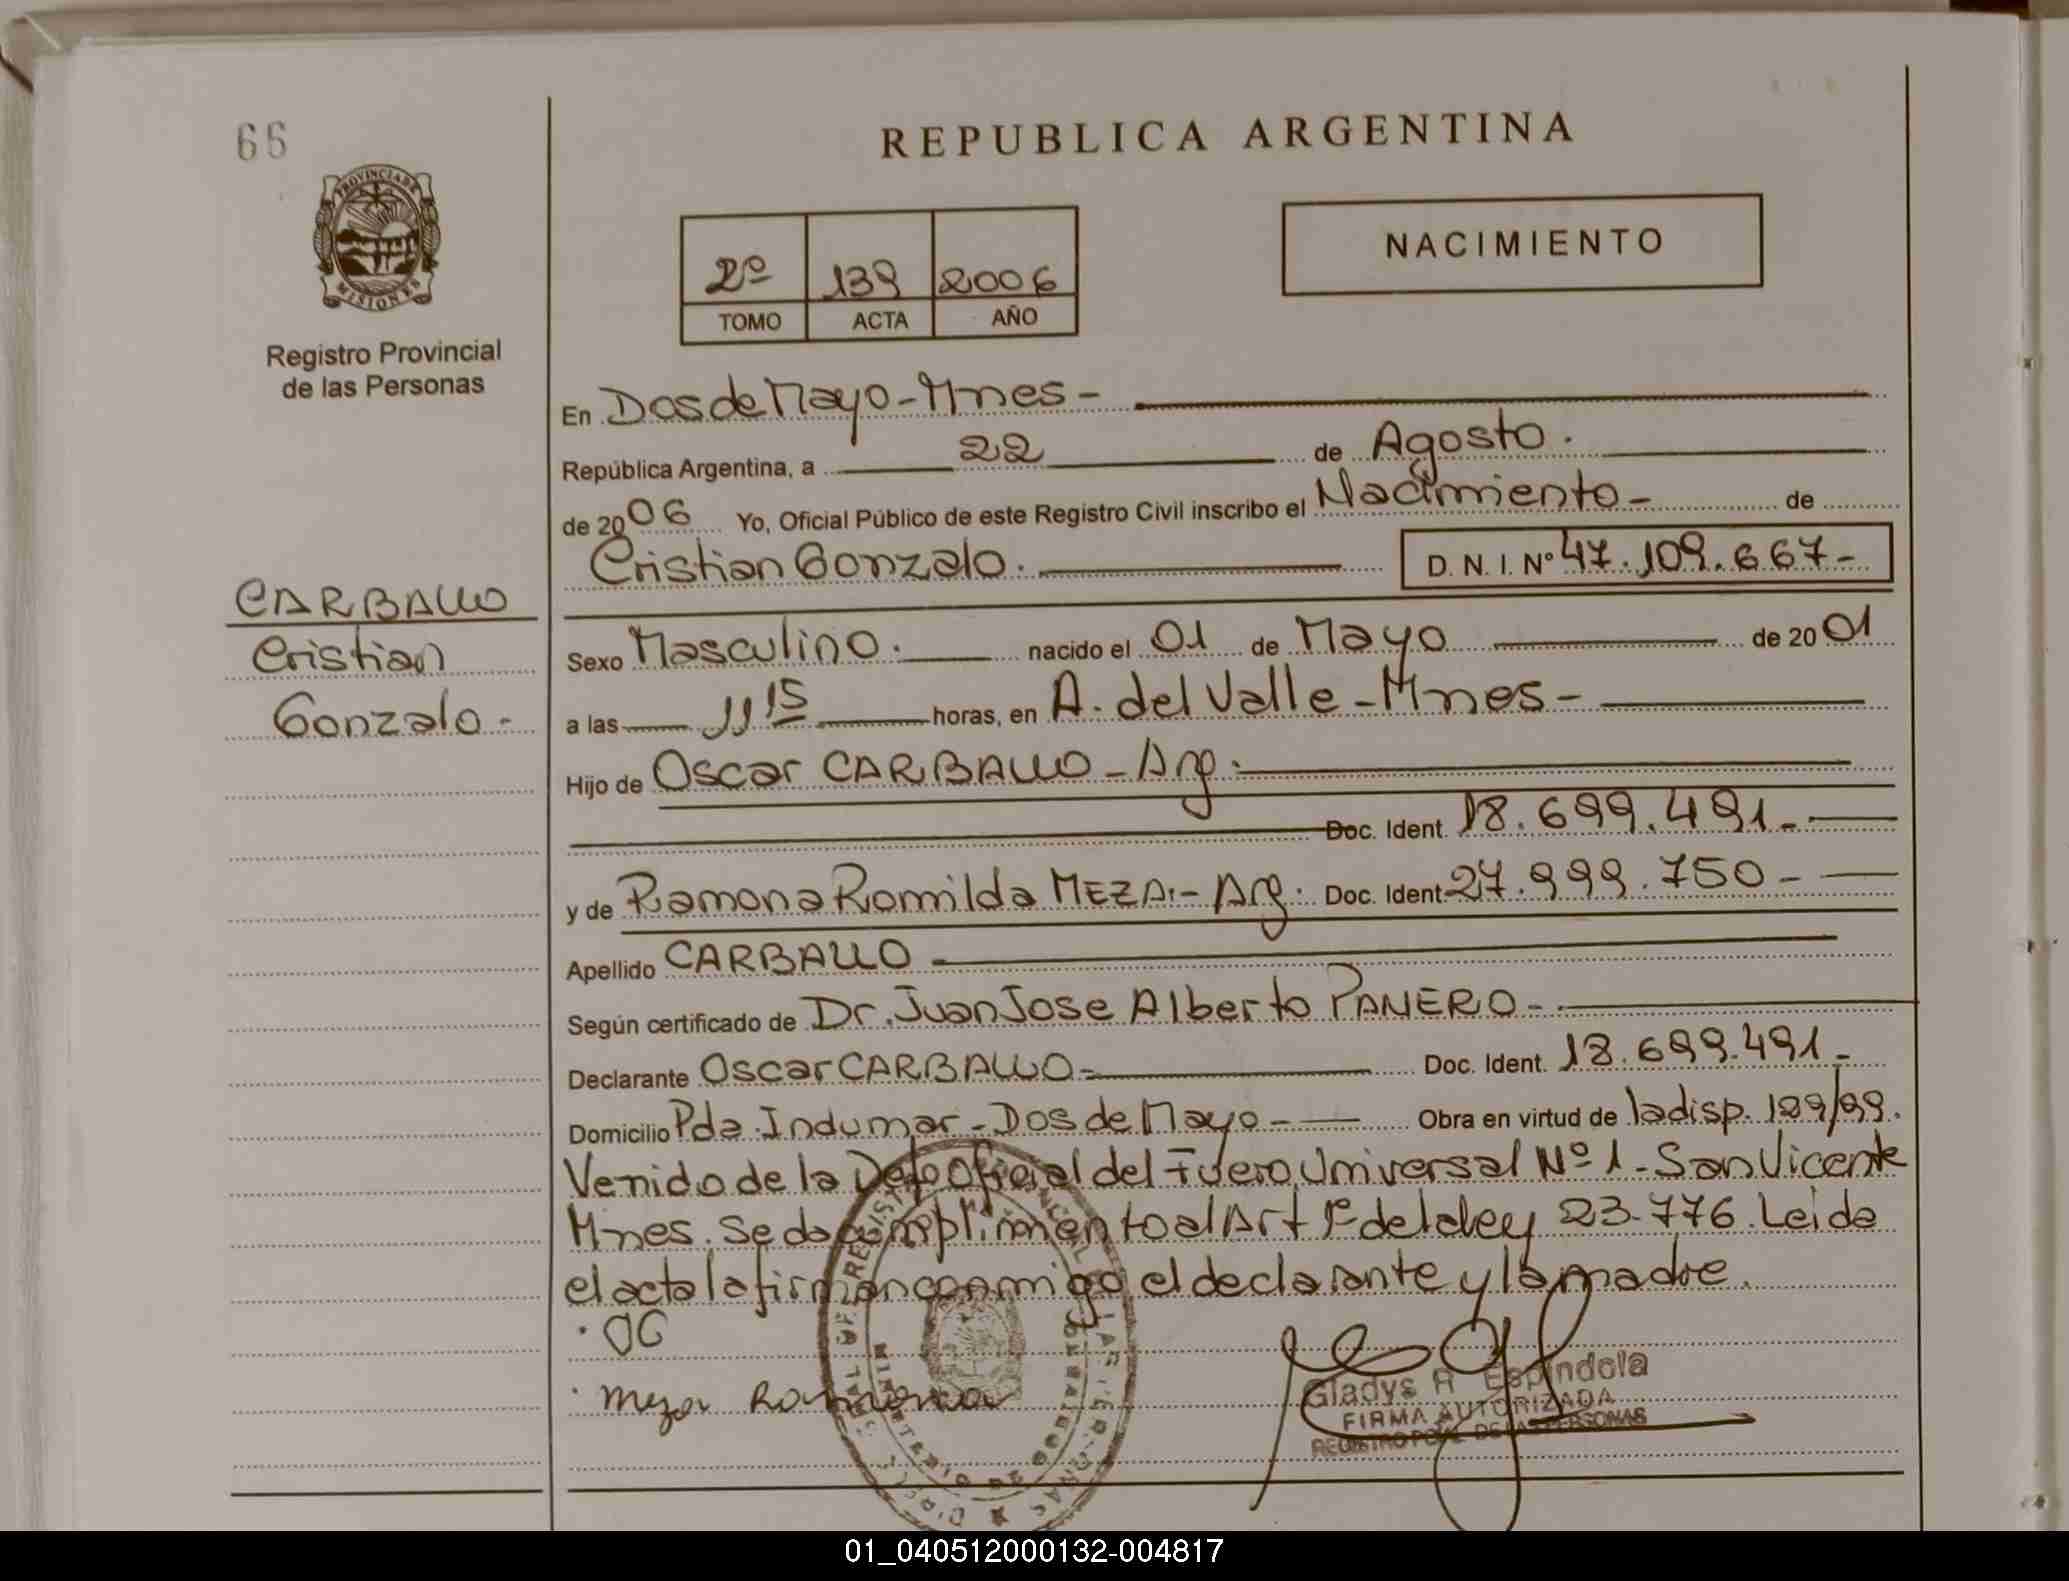 66
REPUBLICA ARGENTINA
PROVINCIA DE
MISIONES
Registro Provincial
de las Personas
2º 139 2006
TOMO ACTA AÑO
NACIMIENTO
En Dos de Mayo - Mnes -
República Argentina, a 22 de Agosto.
de 2006 Yo, Oficial Público de este Registro Civil inscribo el Nacimiento - de
Cristian Gonzalo. D. N. I. Nº 47.109.667-
CARBALLO
Cristian
Gonzalo -
Sexo Masculino. nacido el 01 de Mayo de 2001
a las 11 15 horas, en A. del Valle - Mnes -
Hijo de Oscar CARBALLO - Arg.
Doc. Ident. 18.699.491-
y de Ramona Romilda MEZA.- Arg. Doc. Ident. 27.999.750-
Apellido CARBALLO
Según certificado de Dr. Juan Jose Alberto PANERO -
Declarante Oscar CARBALLO - Doc. Ident. 18.699.491-
Domicilio Pda. Indumar - Dos de Mayo - Obra en virtud de la disp. 199/99.
Venido de la Oficial del Fuero Universal Nº 1 - San Vicente
Mnes. Se da cumplimento al Art 1º de la ley 23-776. Leida
el acta la firman conmigo, el declarante y la madre.
OC
Meza Ramona
Gladys R Espindola
FIRMA AUTORIZADA
REGISTRO PCIAL DE LAS PERSONAS
01_040512000132-004817